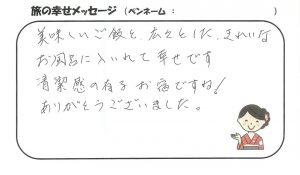 旅の幸せメッセージ (ペンネーム： )
美味しいご飯と、広々とした、きれいな
お風呂に入いれて幸せです
清潔感の有るお宿ですね！
ありがとうございました。